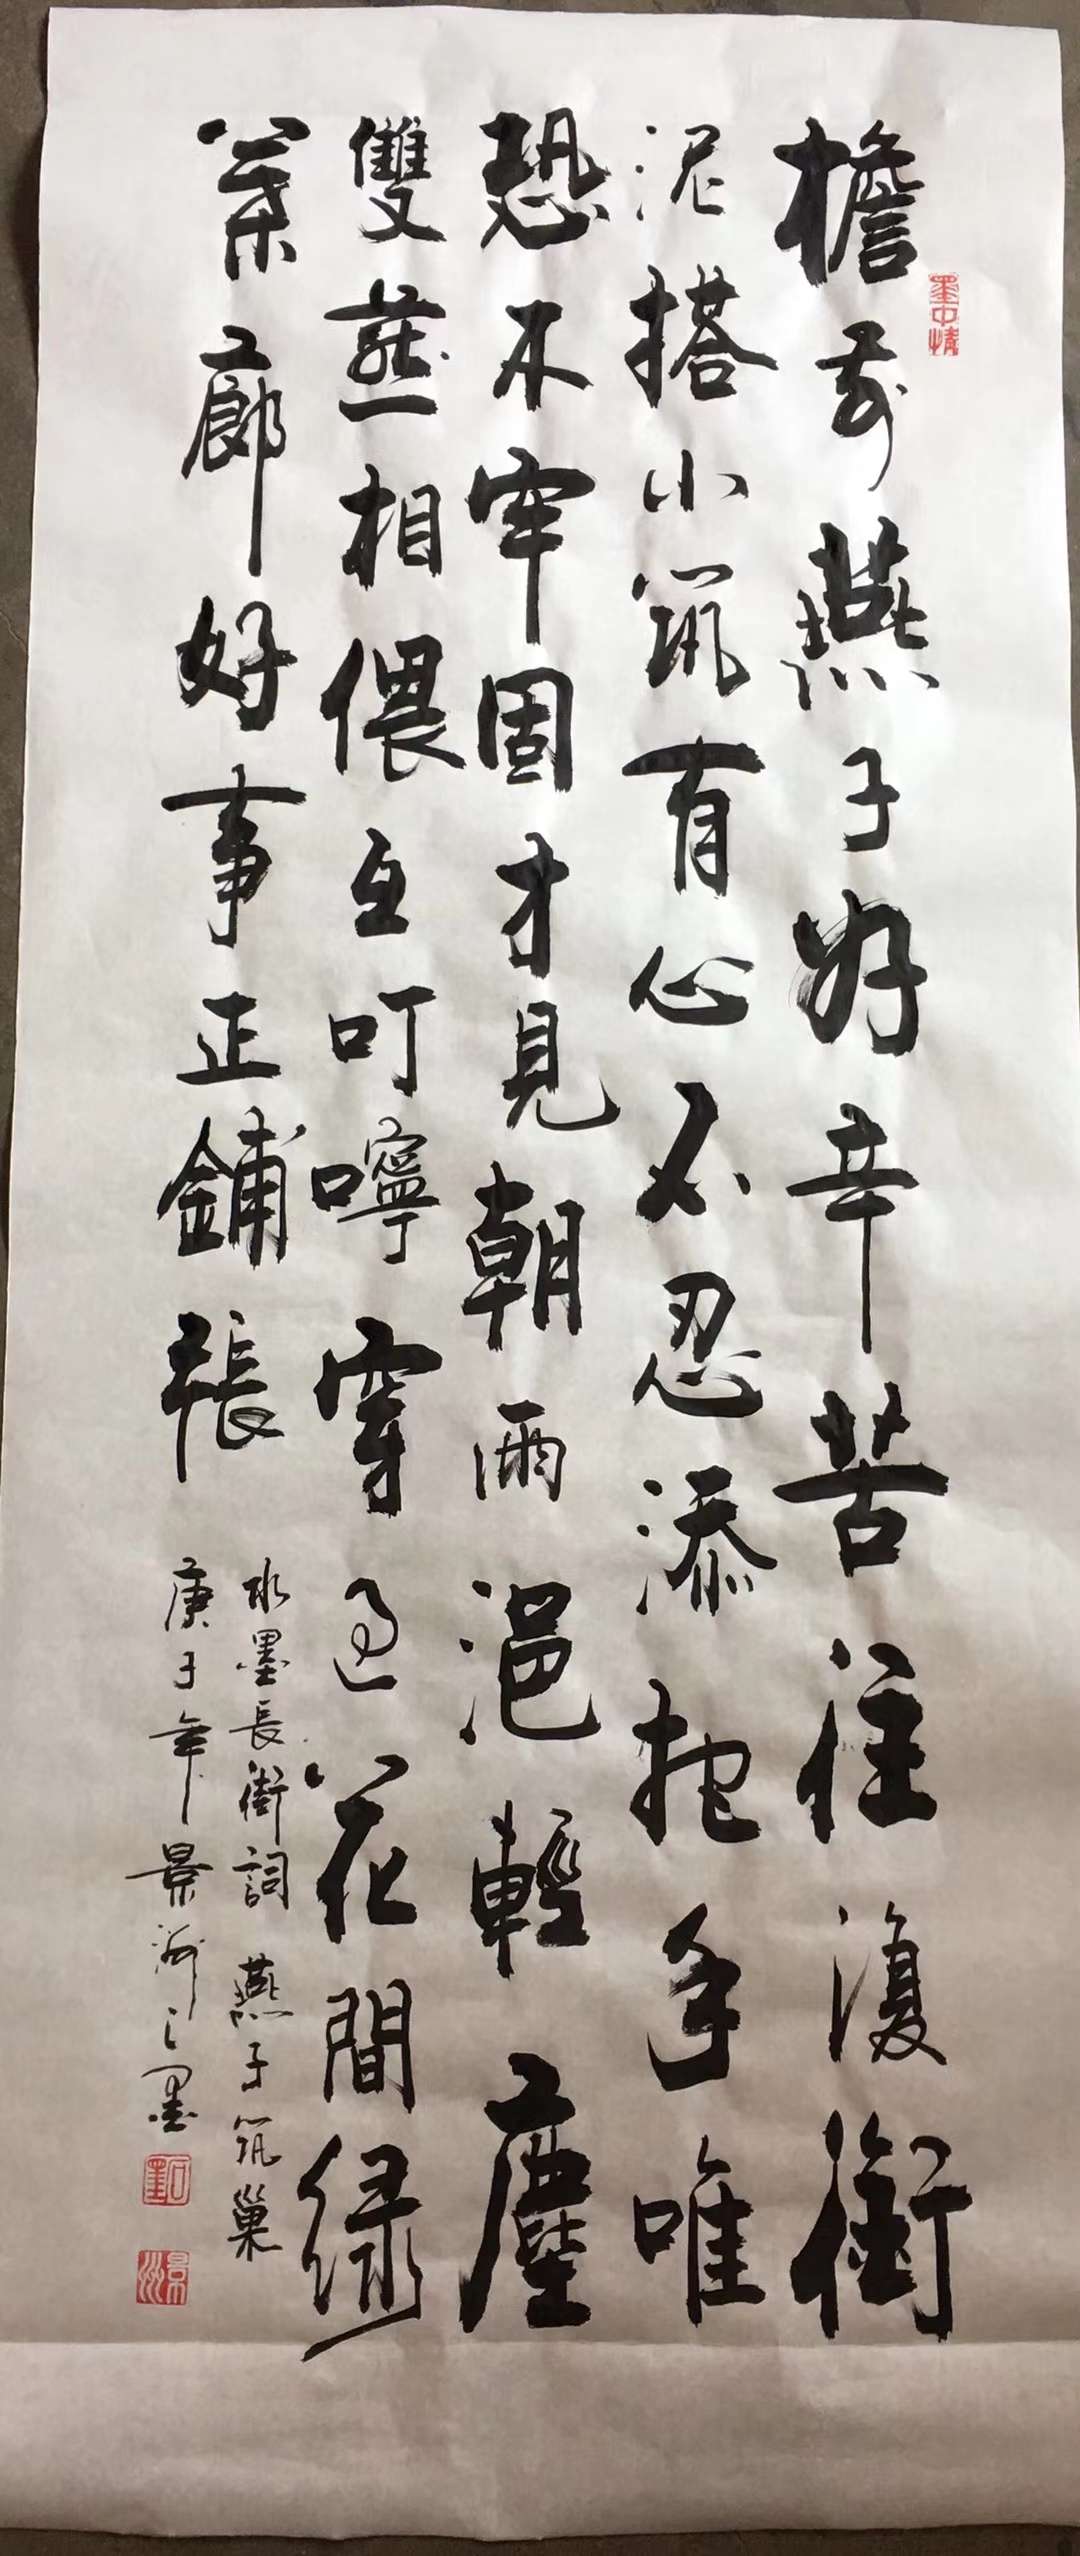 檐前燕子好辛苦往復銜
泥搭小筑有心不忍添抱手唯
恐不牢固才見朝雨浥輕塵
雙燕相偎互叮嚀穿過花間緑
葉廊好事正鋪張
水墨長街詞 燕子筑巢
庚子年景洲之墨
墨中情